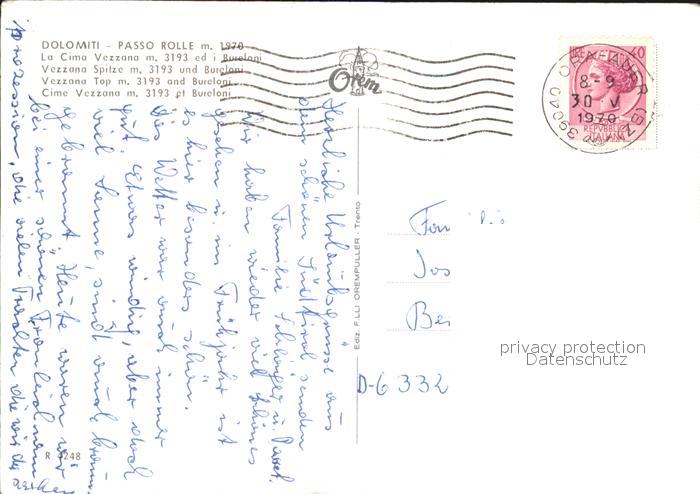 DOLOMITI - PASSO ROLLE m. 1970
La Cima Vezzana m. 3193 ed i Bureloni
Vezzana Spitze m. 3193 und Bureloni
Vezzana Top m. 3193 and Bureloni
Cime Vezzana m. 3193 et Bureloni
Orem
LIRE 40
REPVBBLICA
ITALIANA
39040 ORA/AUER (BZ)
8.-9
30 V
1970
Herrliche Urlaubsgrüsse aus
dem schönen Südtirol senden
Familie u.
Wir haben wieder viel schönes
gesehen u. im Frühjahr ist
es hier besonders schön.
Das Wetter war auch immer
gut. Etwas windig, aber doch
viel Sonne, sind auch braun
gebrannt. Heute waren wir
bei einer schönen Fronleichnam
prozession, die vielen Trachten die wir da
Ediz. F.LLI OREMPULLER - Trento
Fam
Jos
Ber
D-6332
privacy protection
Datenschutz
R 4248